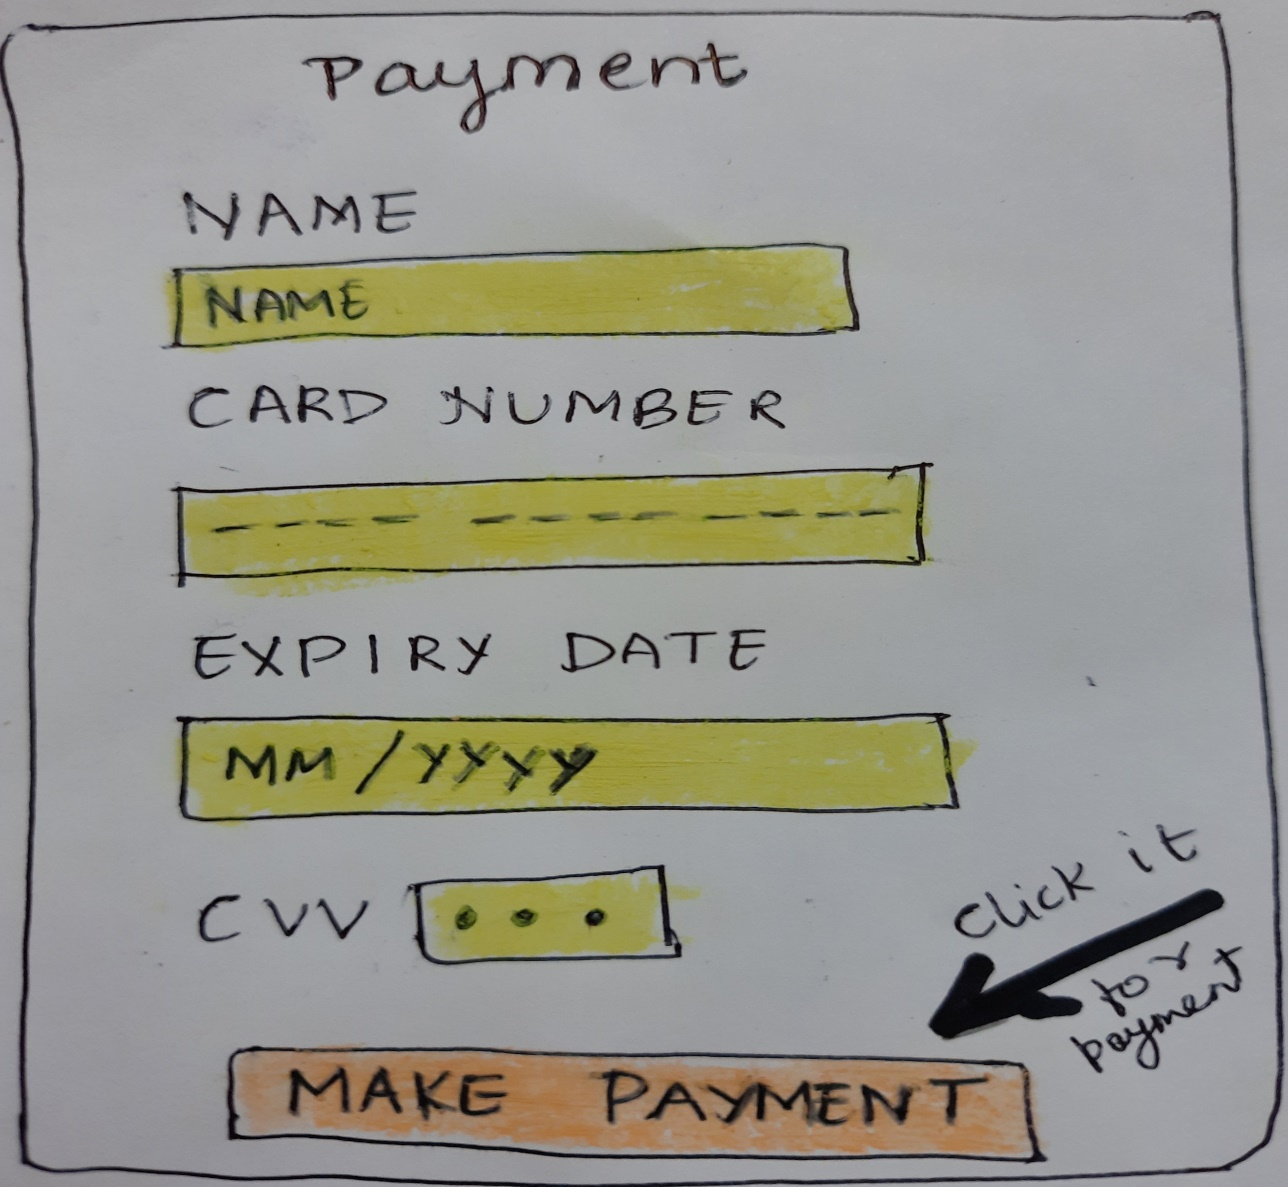 Payment
NAME
NAME
CARD NUMBER
---- ---- ----
EXPIRY DATE
MM/YYYY
CVV
Click it
for
payment
MAKE PAYMENT